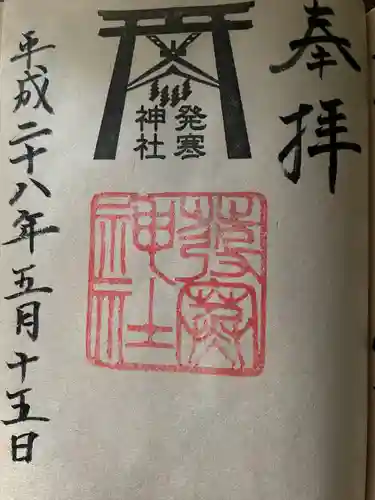 奉拝
発寒
神社
発寒
神社
平成二十八年五月十五日